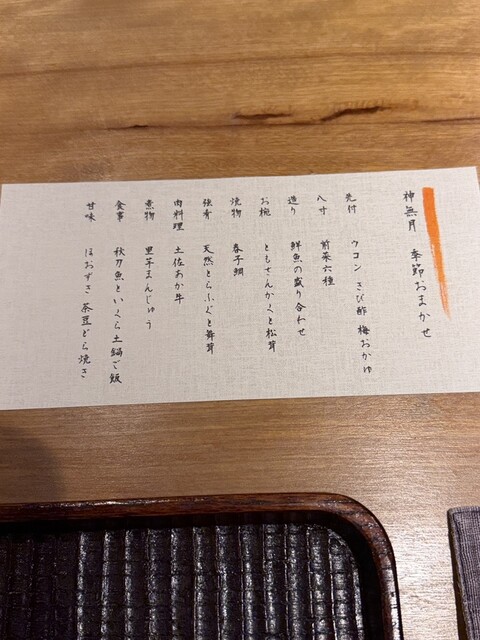 神無月 季節おまかせ
先付 ウコン きび酢 梅おかゆ
八寸 前菜六種
造り 鮮魚の盛り合わせ
お椀 ともさんかくと松茸
焼物 春子鯛
強肴 天然とらふぐと舞茸
肉料理 土佐あか牛
煮物 里芋まんじゅう
食事 秋刀魚といくら土鍋ご飯
甘味 ほおずき 茶豆どら焼き